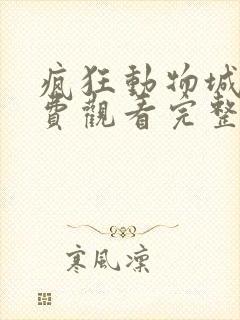 瘋狂動物城
費觀看完整
寒風凜